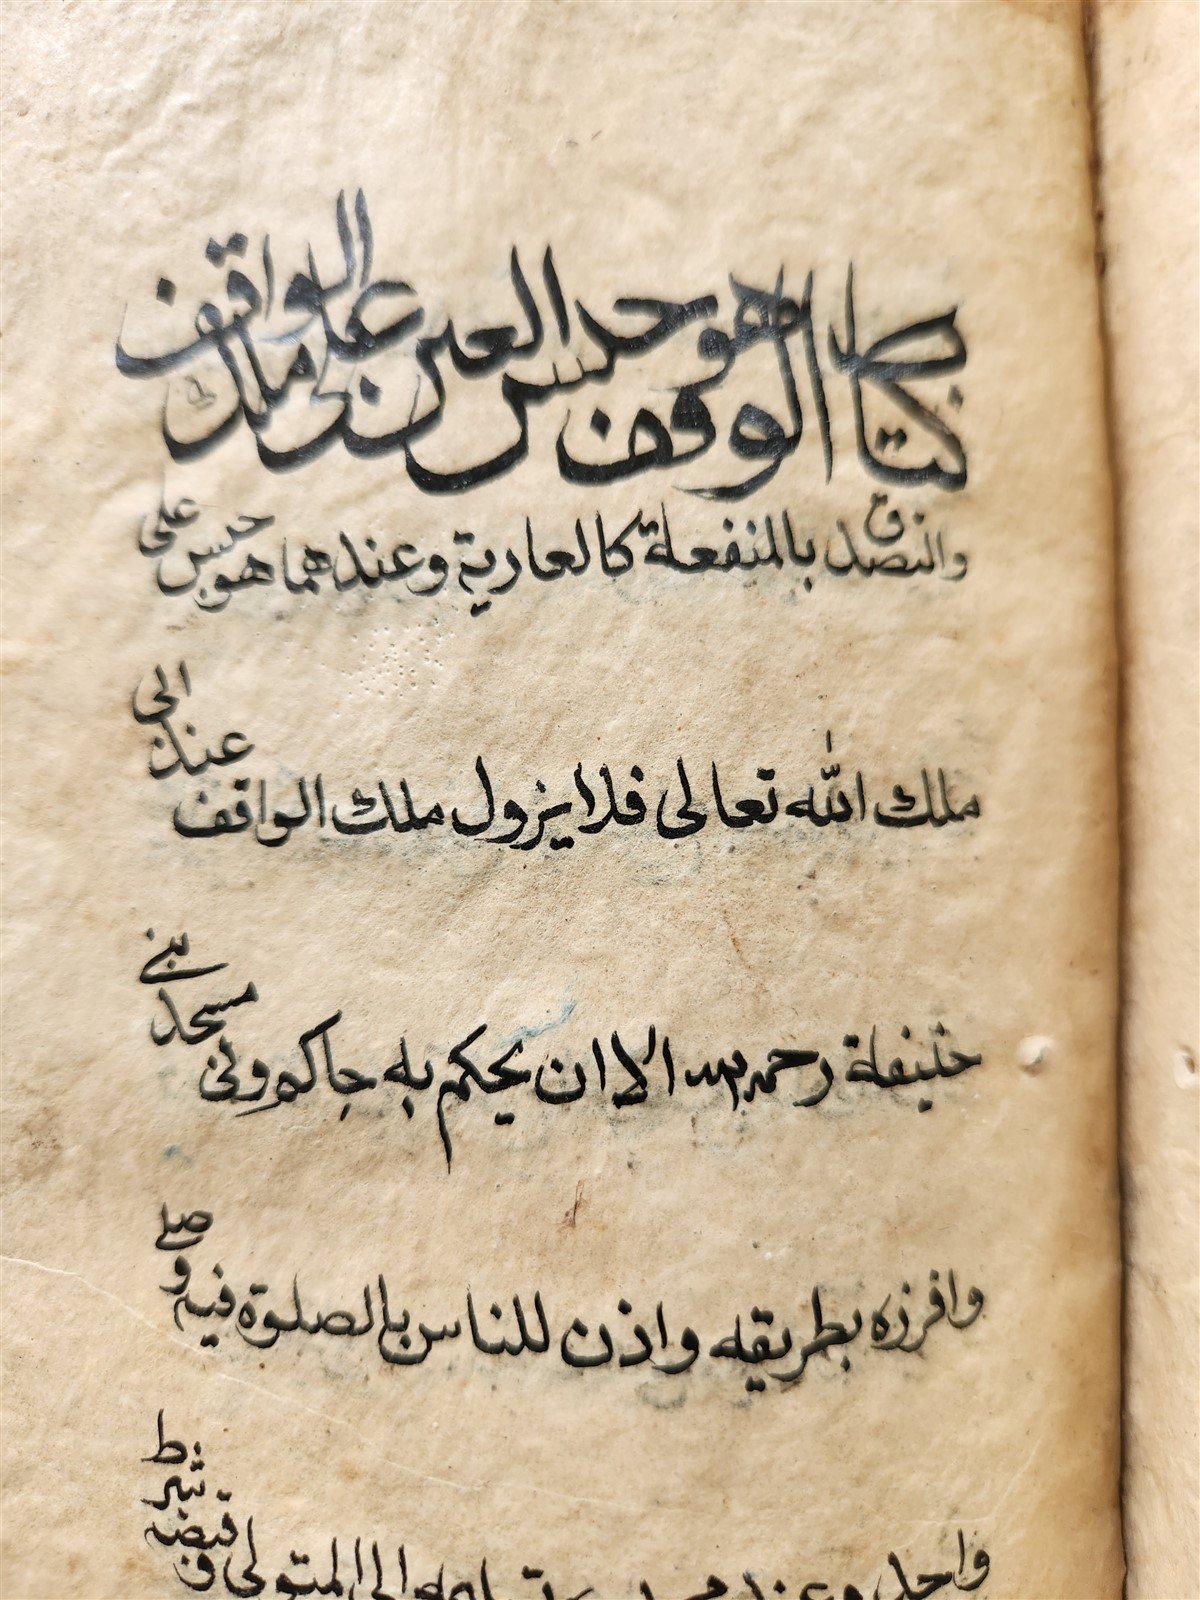 كتاب الوقف هو حبس العين على ملك الواقف
والتصدق بالمنفعة كالعارية وعندهما هو حبس على
ملك الله تعالى فلا يزول ملك الواقف عند ابى
حنيفة رحمه الله الا ان يحكم به حاكم وفى مسجد بنى
وافرزه بطريقه واذن للناس بالصلوة فيه وصلى
واحد وعند محمد تسليمه الى المتولى وقبضه شرط